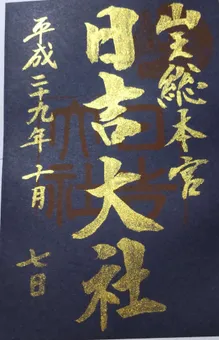 山王総本宮
日吉大社
平成二十九年十月
七日